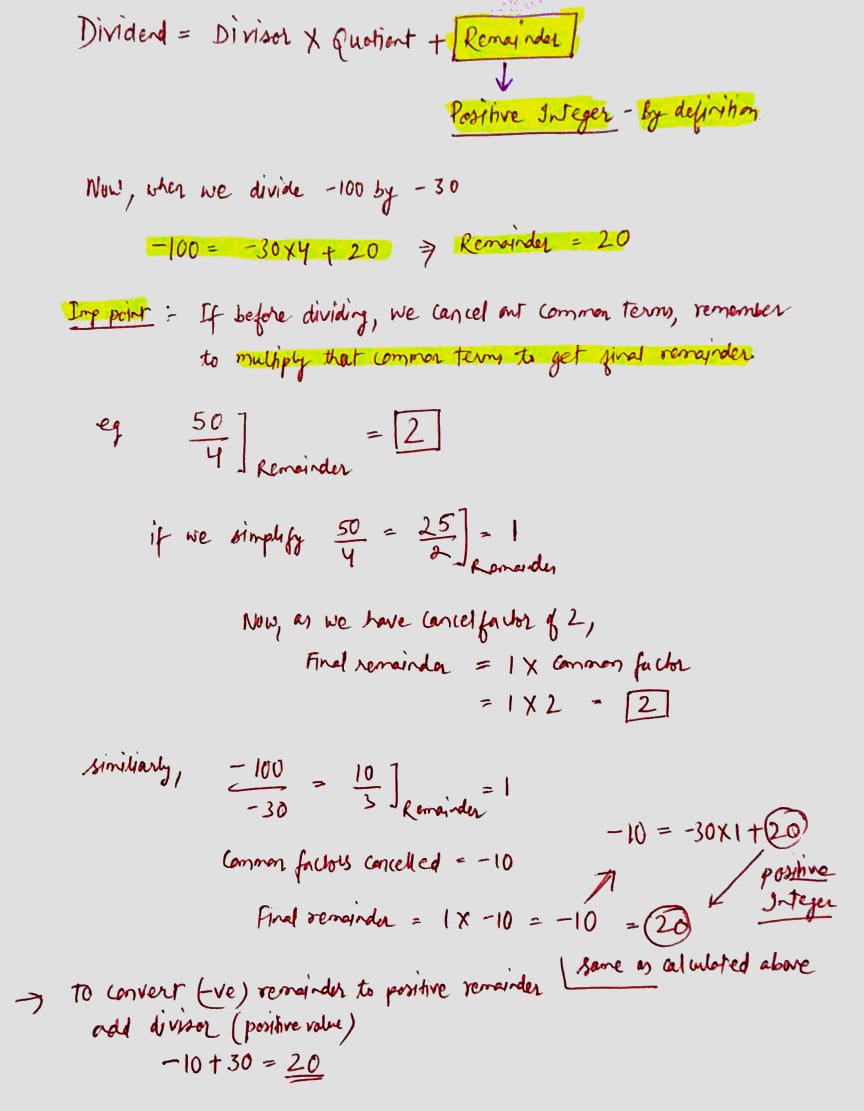 Dividend = Divisor X Quotient + Remainder
↓
Positive Integer - By definition
Now, when we divide -100 by -30
-100 = -30X4 + 20 ⇒ Remainder = 20
Imp point :- If before dividing, we cancel out common terms, remember
to multiply that common terms to get final remainder.
eg 50/4 ] Remainder = 2
if we simplify 50/4 = 25/2 ] Remainder = 1
Now, as we have cancel factor of 2,
Final remainder = 1 X Common factor
= 1 X 2 = 2
similiarly, -100/-30 = 10/3 ] Remainder = 1
-10 = -30X1 + 20
positive
Integer
Common factors cancelled = -10
Final remainder = 1 X -10 = -10 = 20
same as calculated above
→ To convert (-ve) remainder to positive remainder
add divisor (positive value)
-10 + 30 = 20